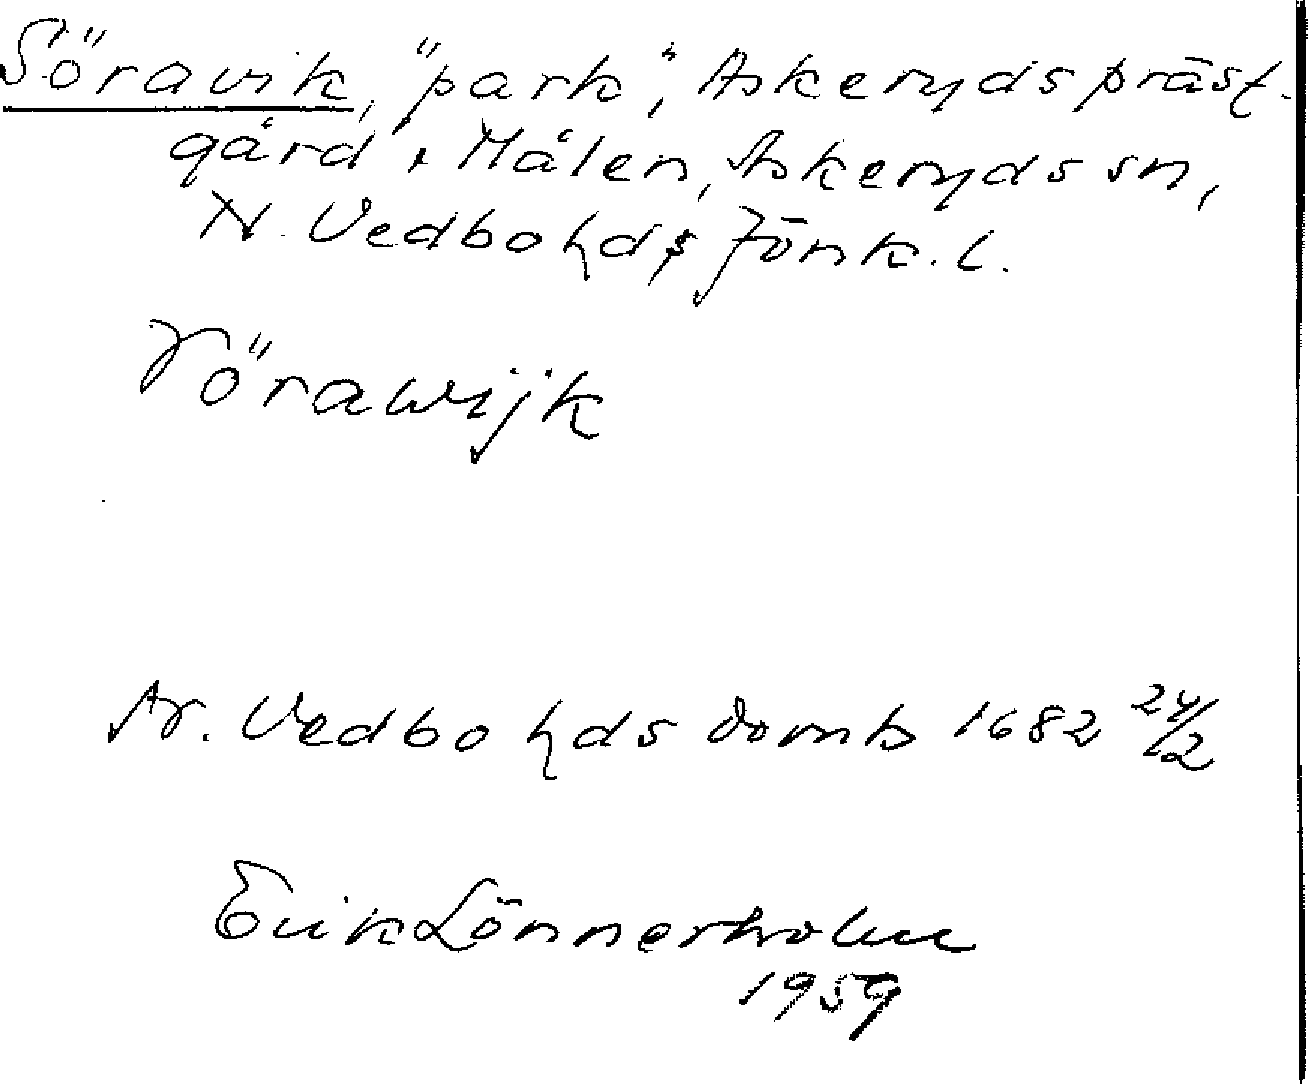 Söravik, "park", Askeryds präst-
gård, Målen, Askeryds sn,
N. Vedbo hds, Jönk. l.
Sörawijk
N. Vedbo hds domb 1682 24/2
Erik Lönnerholm
1959